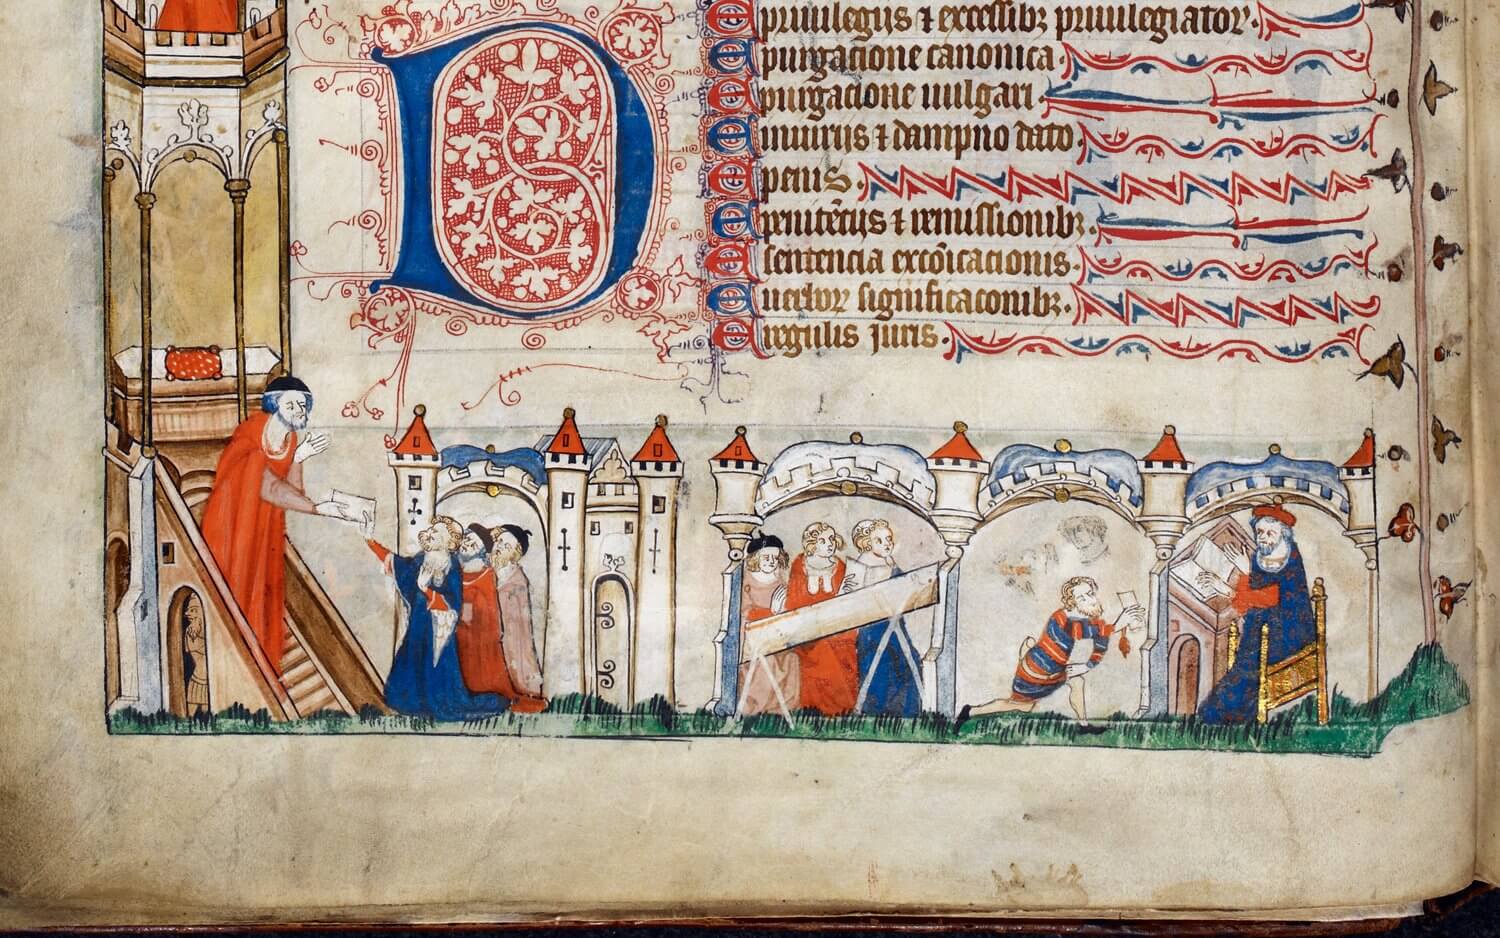 D
E priuilegijs ⁊ excessibꝫ priuilegiatorꝝ.
E purgacione canonica.
E purgacione uulgari.
E iniurijs ⁊ dampno dato.
E penis.
E penitẽcijs ⁊ remissionibꝫ.
E sentencia excõicacionis.
E uerborꝝ significaconibꝫ.
E regulis juris.